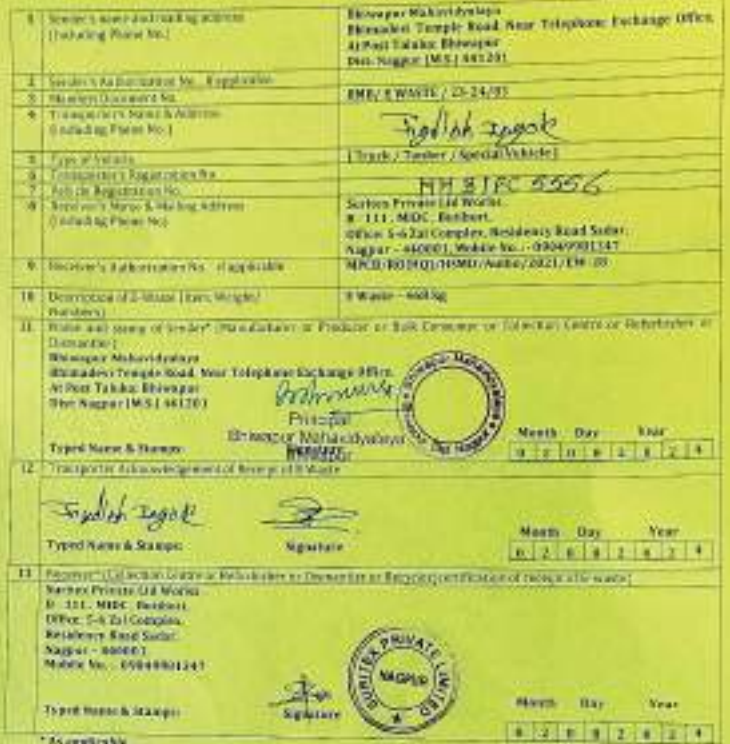 1 Sender's name and mailing address
(Including Phone No.)
Bhiwapur Mahavidyalaya
Bhimadevi Temple Road, Near Telephone Exchange Office,
At Post Taluka: Bhiwapur
Dist. Nagpur (M.S.) 441201
2 Sender's Authorization No., if applicable
3 Manifest Document No.
BMB/ E WASTE / 23-24/03
4 Transporter's Name & Address
(including Phone No.)
5 Type of Vehicle
(Truck / Tanker / Special Vehicle)
6 Transporter's Registration No
7 Vehicle Registration No.
MH 31FC 5556
8 Receiver's Name & Mailing Address
(including Phone No)
Private Ltd Works.
111, MIDC, Butibori.
Office: 5-6 Zal Complex, Residency Road Sadar,
Nagpur - 440001, Mobile No.: -09049901347
9. Receiver's Authorization No. if applicable
10 Description of E-Waste (Item, Weight/
Numbers)
E Waste -
11 Name and stamp of Sender* (Manufacturer or Producer or Bulk Consumer or Collection Centre or Refurbisher or
Dismantler)
Bhiwapur Mahavidyalaya
Bhimadevi Temple Road, Near Telephone Exchange Office,
At Post Taluka: Bhiwapur
Dist Nagpur (M.S.) 441201
Principal
Bhiwapur Mahavidyalaya
Typed Name & Stamps:
Month Day Year
12 Transporter Acknowledgement of Receipt of E Waste
Typed Name & Stamps: Signature
Month Day Year
13 Receiver* (Collection Centre or Refurbisher or Dismantler or Recycling certification of receipt of E-waste)
Private Ltd Works
111, MIDC, Butibori,
Office: 5-6 Zal Complex,
Residency Road Sadar,
Nagpur -
Mobile No. - 09049901347
PRIVATE LIMITED
NAGPUR
Typed Name & Stamps: Signature
Month Day Year
* As applicable